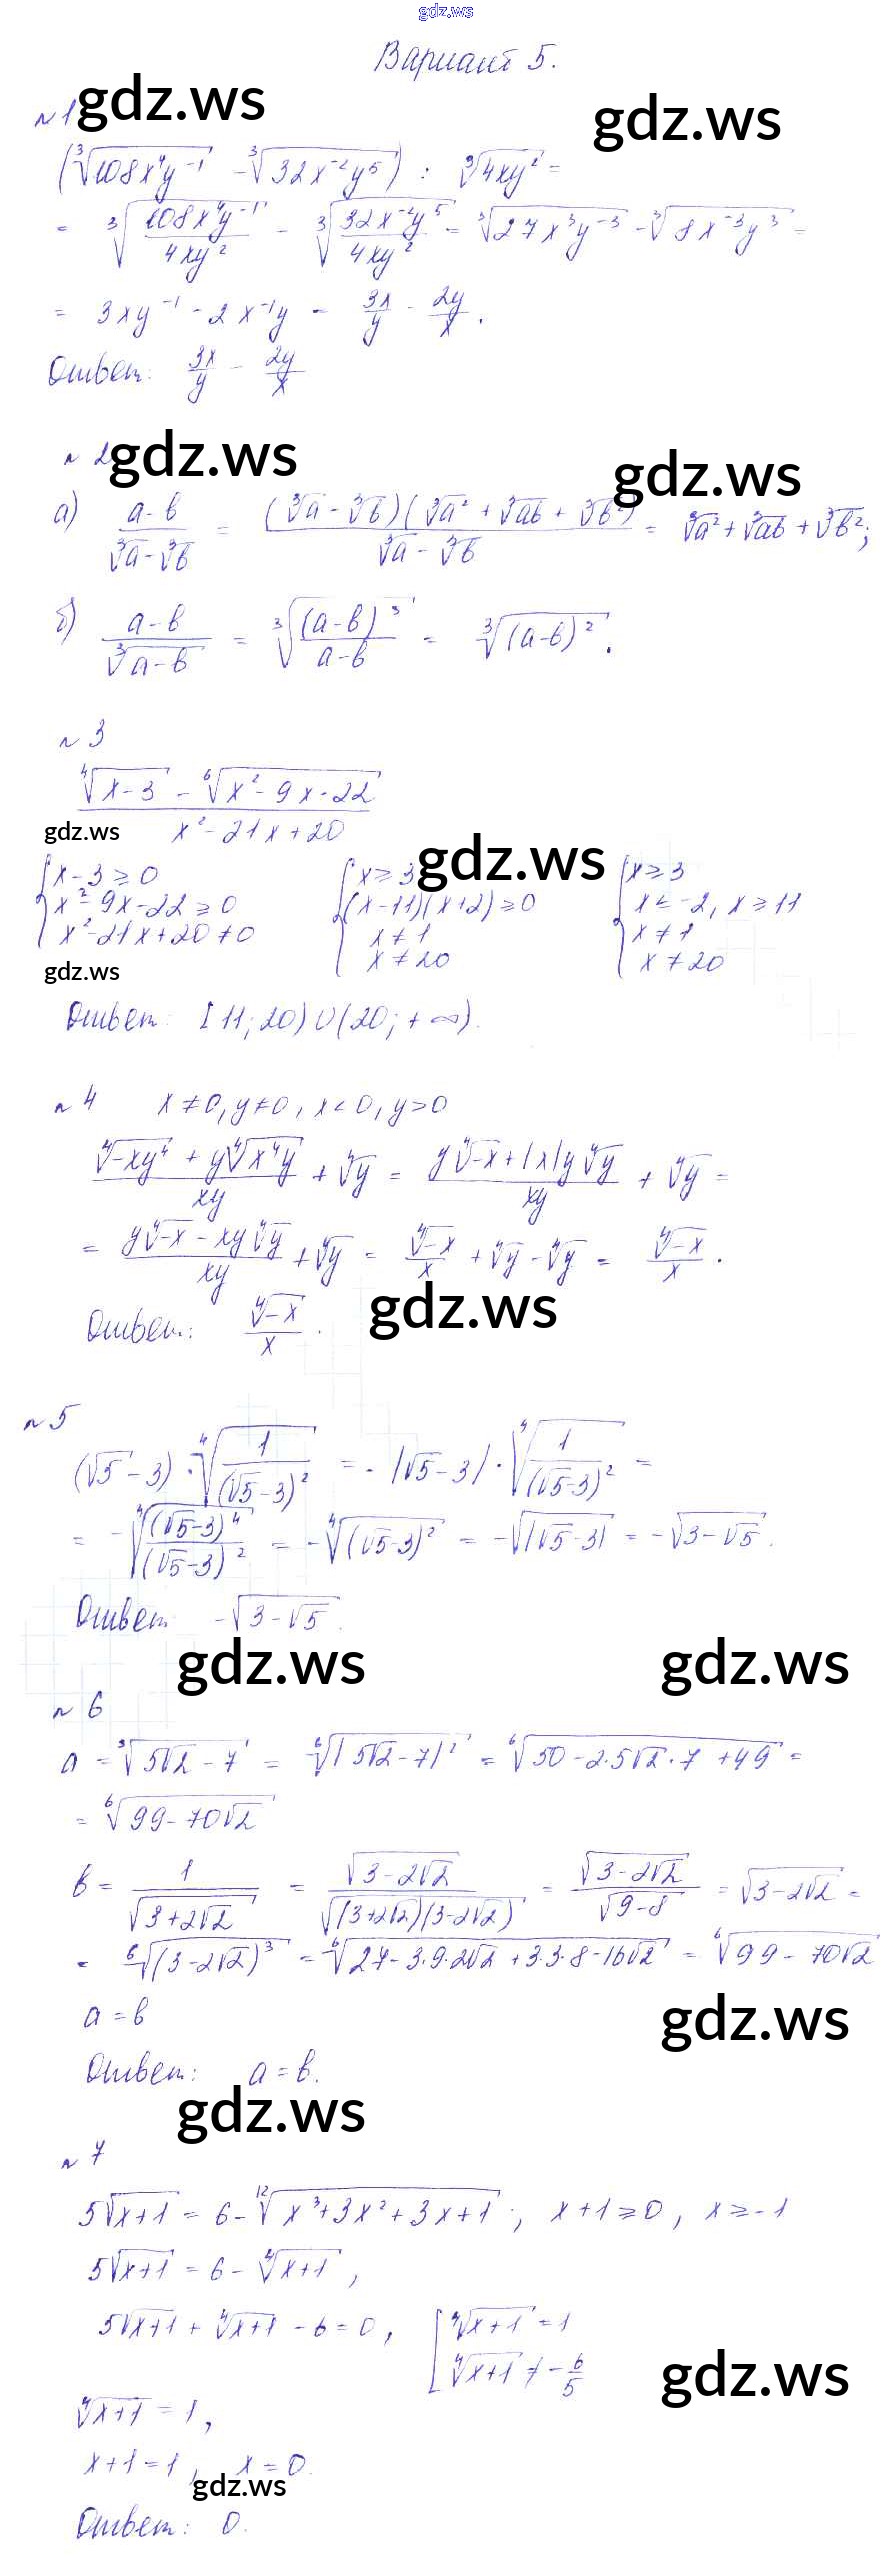 gdz.ws
Вариант 5.
№1 gdz.ws gdz.ws
(∛(108x⁴y⁻¹) - ∛(32x⁻²y⁵)) : ∛(4xy²) =
= ∛(108x⁴y⁻¹/4xy²) - ∛(32x⁻²y⁵/4xy²) = ∛(27x³y⁻³) - ∛(8x⁻³y³) =
= 3xy⁻¹ - 2x⁻¹y = 3x/y - 2y/x.
Ответ: 3x/y - 2y/x
№2 gdz.ws gdz.ws
а) (a-b)/(∛a-∛b) = (∛a-∛b)(∛a²+∛ab+∛b²)/(∛a-∛b) = ∛a²+∛ab+∛b²;
б) (a-b)/∛(a-b) = ∛((a-b)³/(a-b)) = ∛(a-b)².
№3
(⁴√(x-3) - ⁶√(x²-9x-22))/(x²-21x+20)
gdz.ws gdz.ws
{x-3≥0 {x≥3 {x≥3
x²-9x-22≥0 (x-11)(x+2)≥0 x≤-2, x≥11
x²-21x+20≠0 x≠1 x≠1
x≠20 x≠20
gdz.ws
Ответ: [11;20)∪(20;+∞).
№4 x≠0, y≠0, x<0, y>0
(⁴√(-xy⁴) + y⁴√(x⁴y))/xy + ⁴√y = (y⁴√-x + |x|y⁴√y)/xy + ⁴√y =
= (y⁴√-x - xy⁴√y)/xy + ⁴√y = ⁴√-x/x + ⁴√y - ⁴√y = ⁴√-x/x.
gdz.ws
Ответ: ⁴√-x/x.
№5
(√5-3)·⁴√(1/(√5-3)²) = -|√5-3|·⁴√(1/(√5-3)²) =
= -⁴√((√5-3)⁴/(√5-3)²) = -⁴√(√5-3)² = -√|√5-3| = -√(3-√5).
Ответ: -√(3-√5).
gdz.ws gdz.ws
№6
a = ∛(5√2-7) = ⁶√|5√2-7|² = ⁶√(50-2·5√2·7+49) =
= ⁶√(99-70√2)
b = 1/√(3+2√2) = √(3-2√2)/√((3+2√2)(3-2√2)) = √(3-2√2)/√(9-8) = √(3-2√2) =
= ⁶√(3-2√2)³ = ⁶√(27-3·9·2√2+3·3·8-16√2) = ⁶√(99-70√2)
a=b gdz.ws
Ответ: a=b.
gdz.ws
№7
5√(x+1) = 6-¹²√(x³+3x²+3x+1); x+1≥0, x≥-1
5√(x+1) = 6-⁴√(x+1),
5√(x+1)+⁴√(x+1)-6=0, [⁴√(x+1)=1
⁴√(x+1)≠-6/5
gdz.ws
⁴√(x+1)=1,
x+1=1, x=0.
gdz.ws
Ответ: 0.